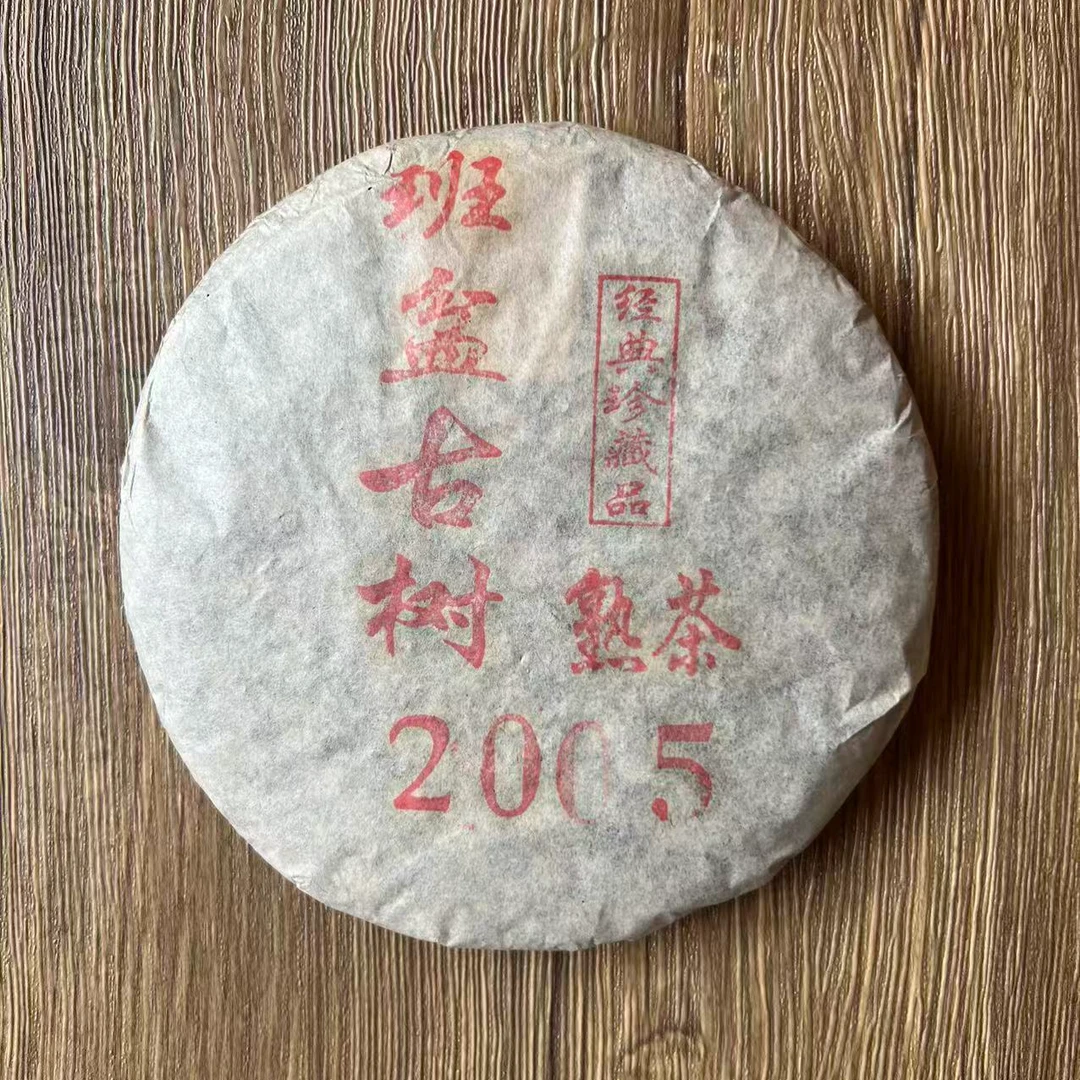 班盆古树
经典珍藏品
熟茶
2005